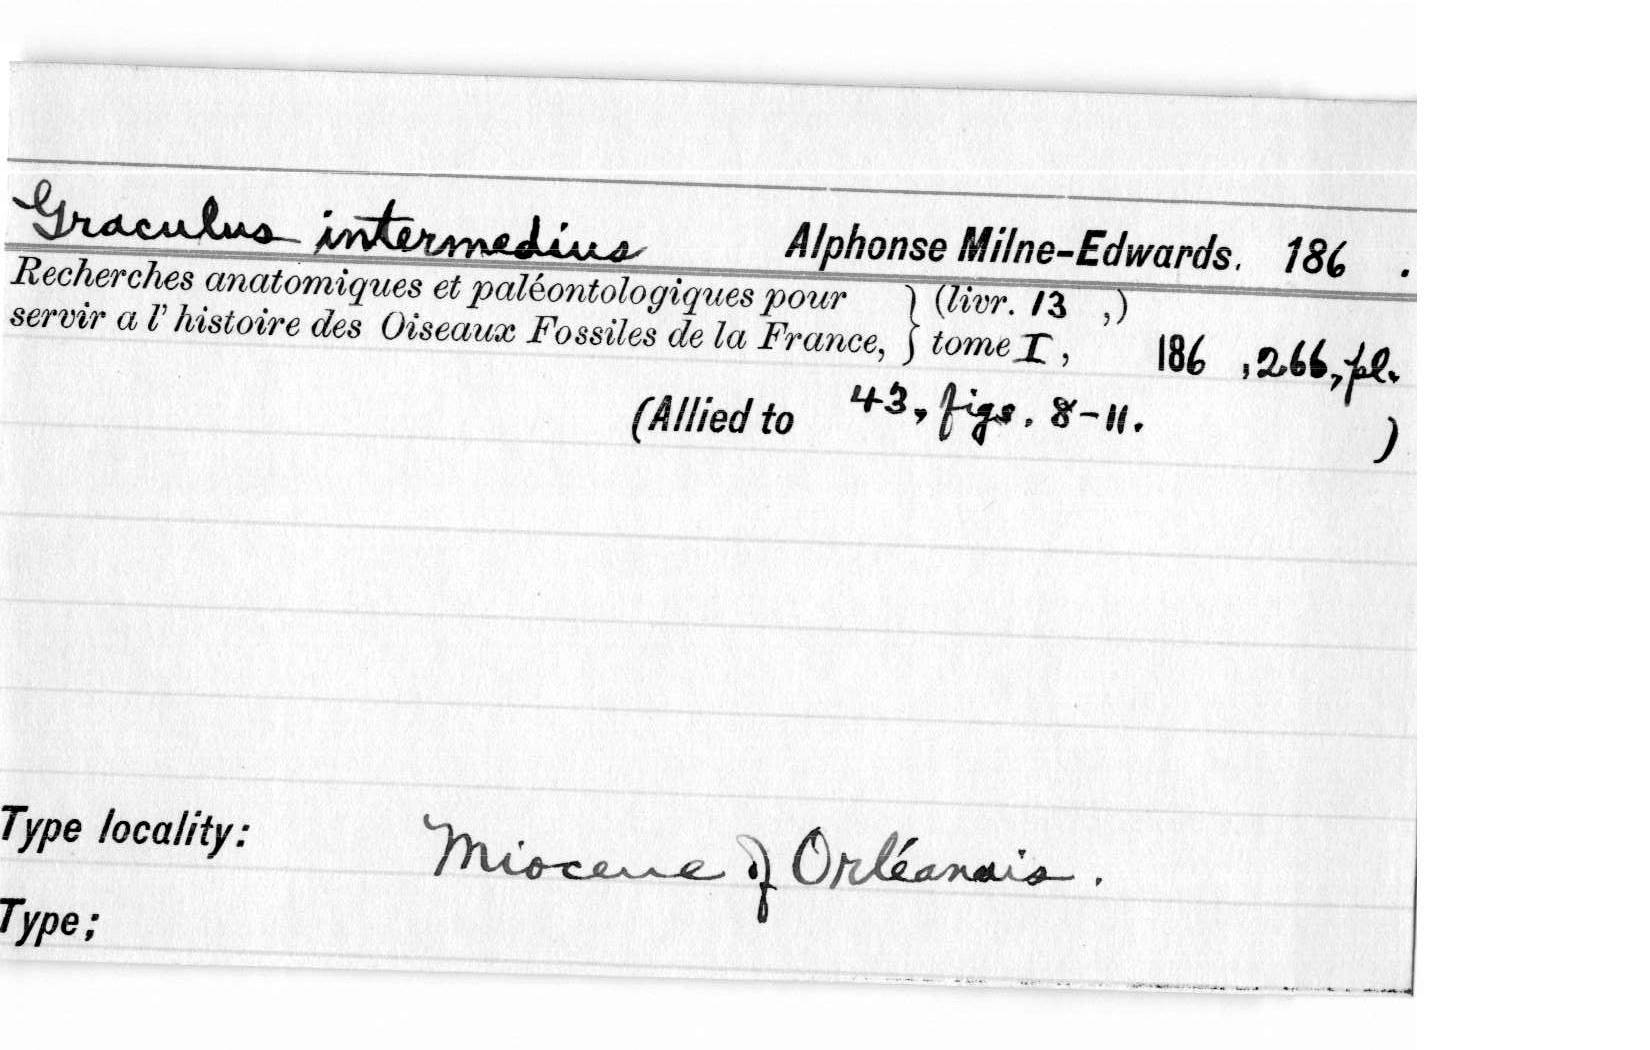 Graculus intermedius Alphonse Milne-Edwards. 186 .
Recherches anatomiques et paléontologiques pour } (livr. 13 ,)
servir a l' histoire des Oiseaux Fossiles de la France, } tome I, 186 , 266, pl.
(Allied to 43, figs. 8-11. )
Type locality: Miocene of Orléanais.
Type;